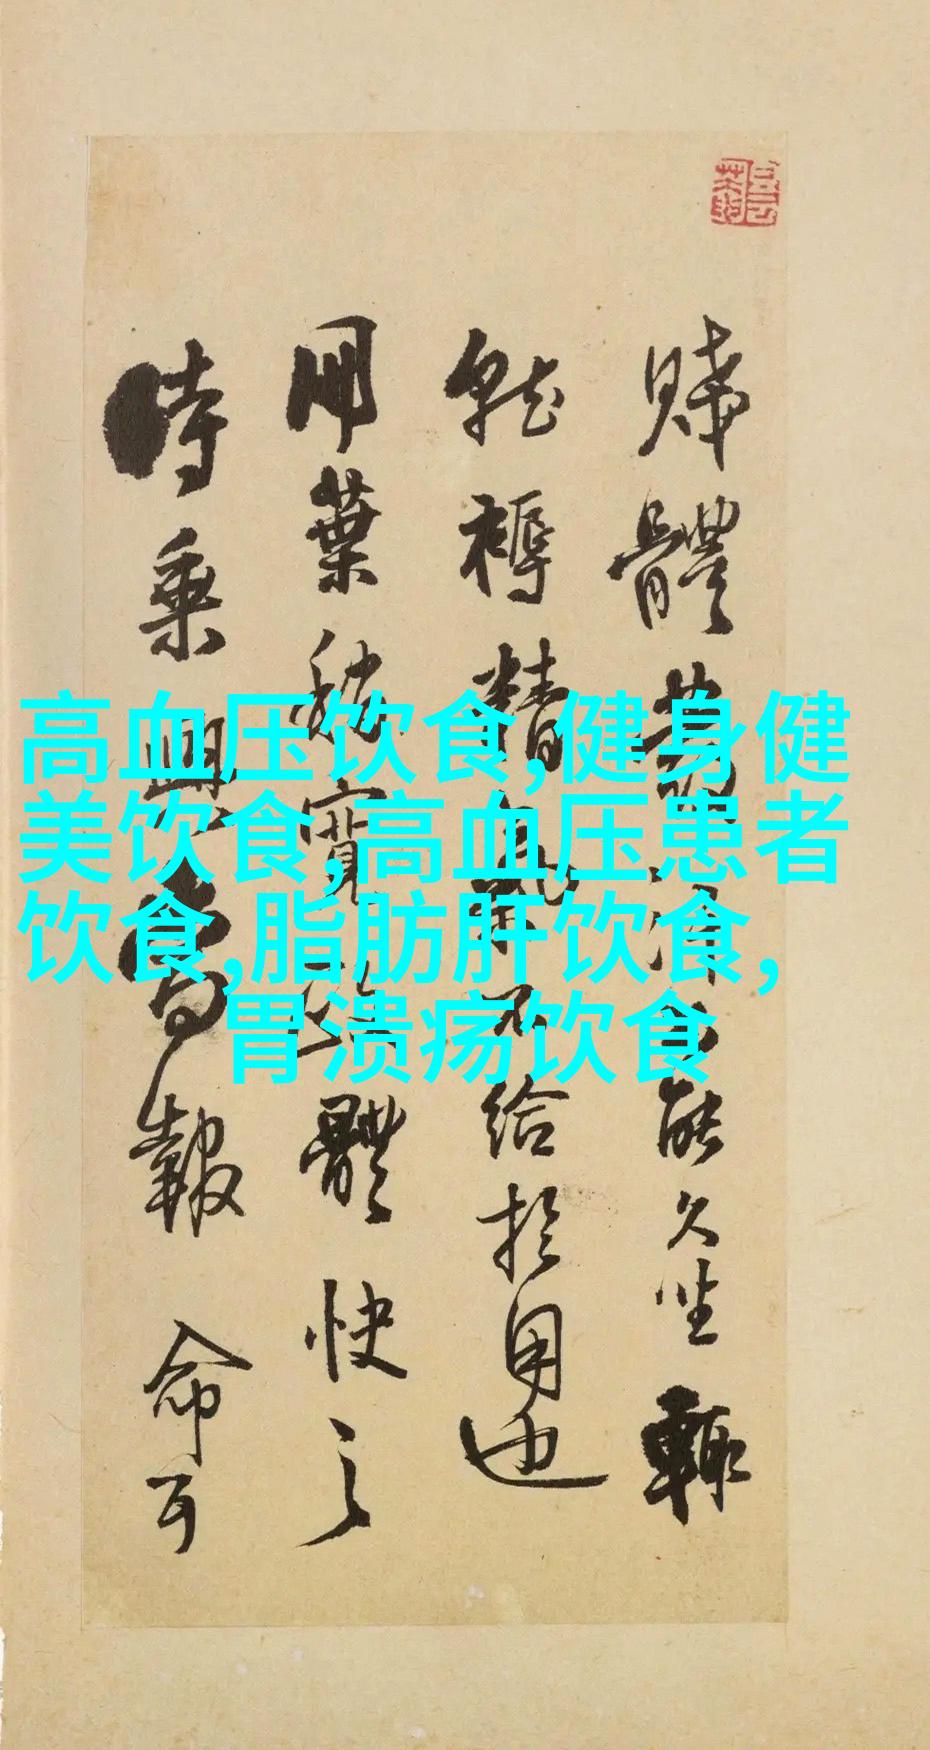 高血压饮食,健身健
美饮食,高血压患者
饮食,脂肪肝饮食,
胃溃疡饮食
賤體 能久坐輙
就褥精氣不給於用也
葉 體快之
時乘興 報命可